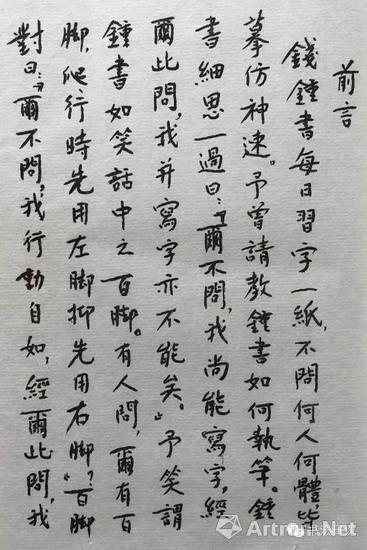 前言
錢鍾書每日習字一紙，不問何人何體皆
摹仿神速。予曾請教鍾書如何執筆。鍾
書細思一過曰：「爾不問，我尚能寫字，經
爾此問，我并寫字亦不能矣。」予笑謂
鍾書如笑話中之百脚。有人問，爾有百
脚，爬行時先用左脚抑先用右脚？百脚
對曰：「爾不問，我行動自如，經爾此問，我
Artron.Net